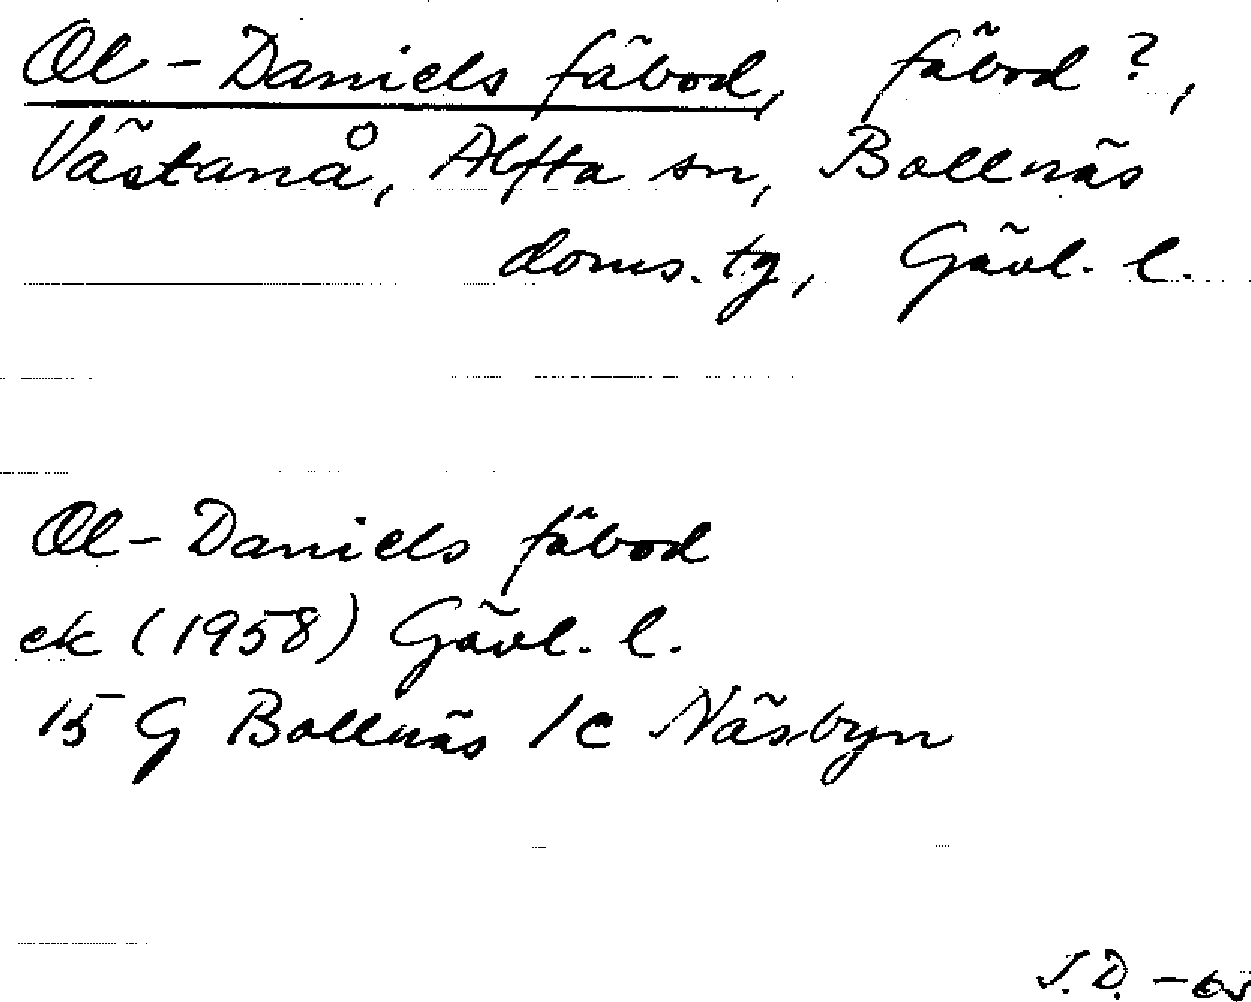 Ol-Daniels fäbod, fäbod?,
Västanå, Alfta sn, Bollnäs
doms. tg, Gävl. l.
Ol-Daniels fäbod
ek (1958) Gävl. l.
15 G Bollnäs 1c Näsbyn
J.D. -